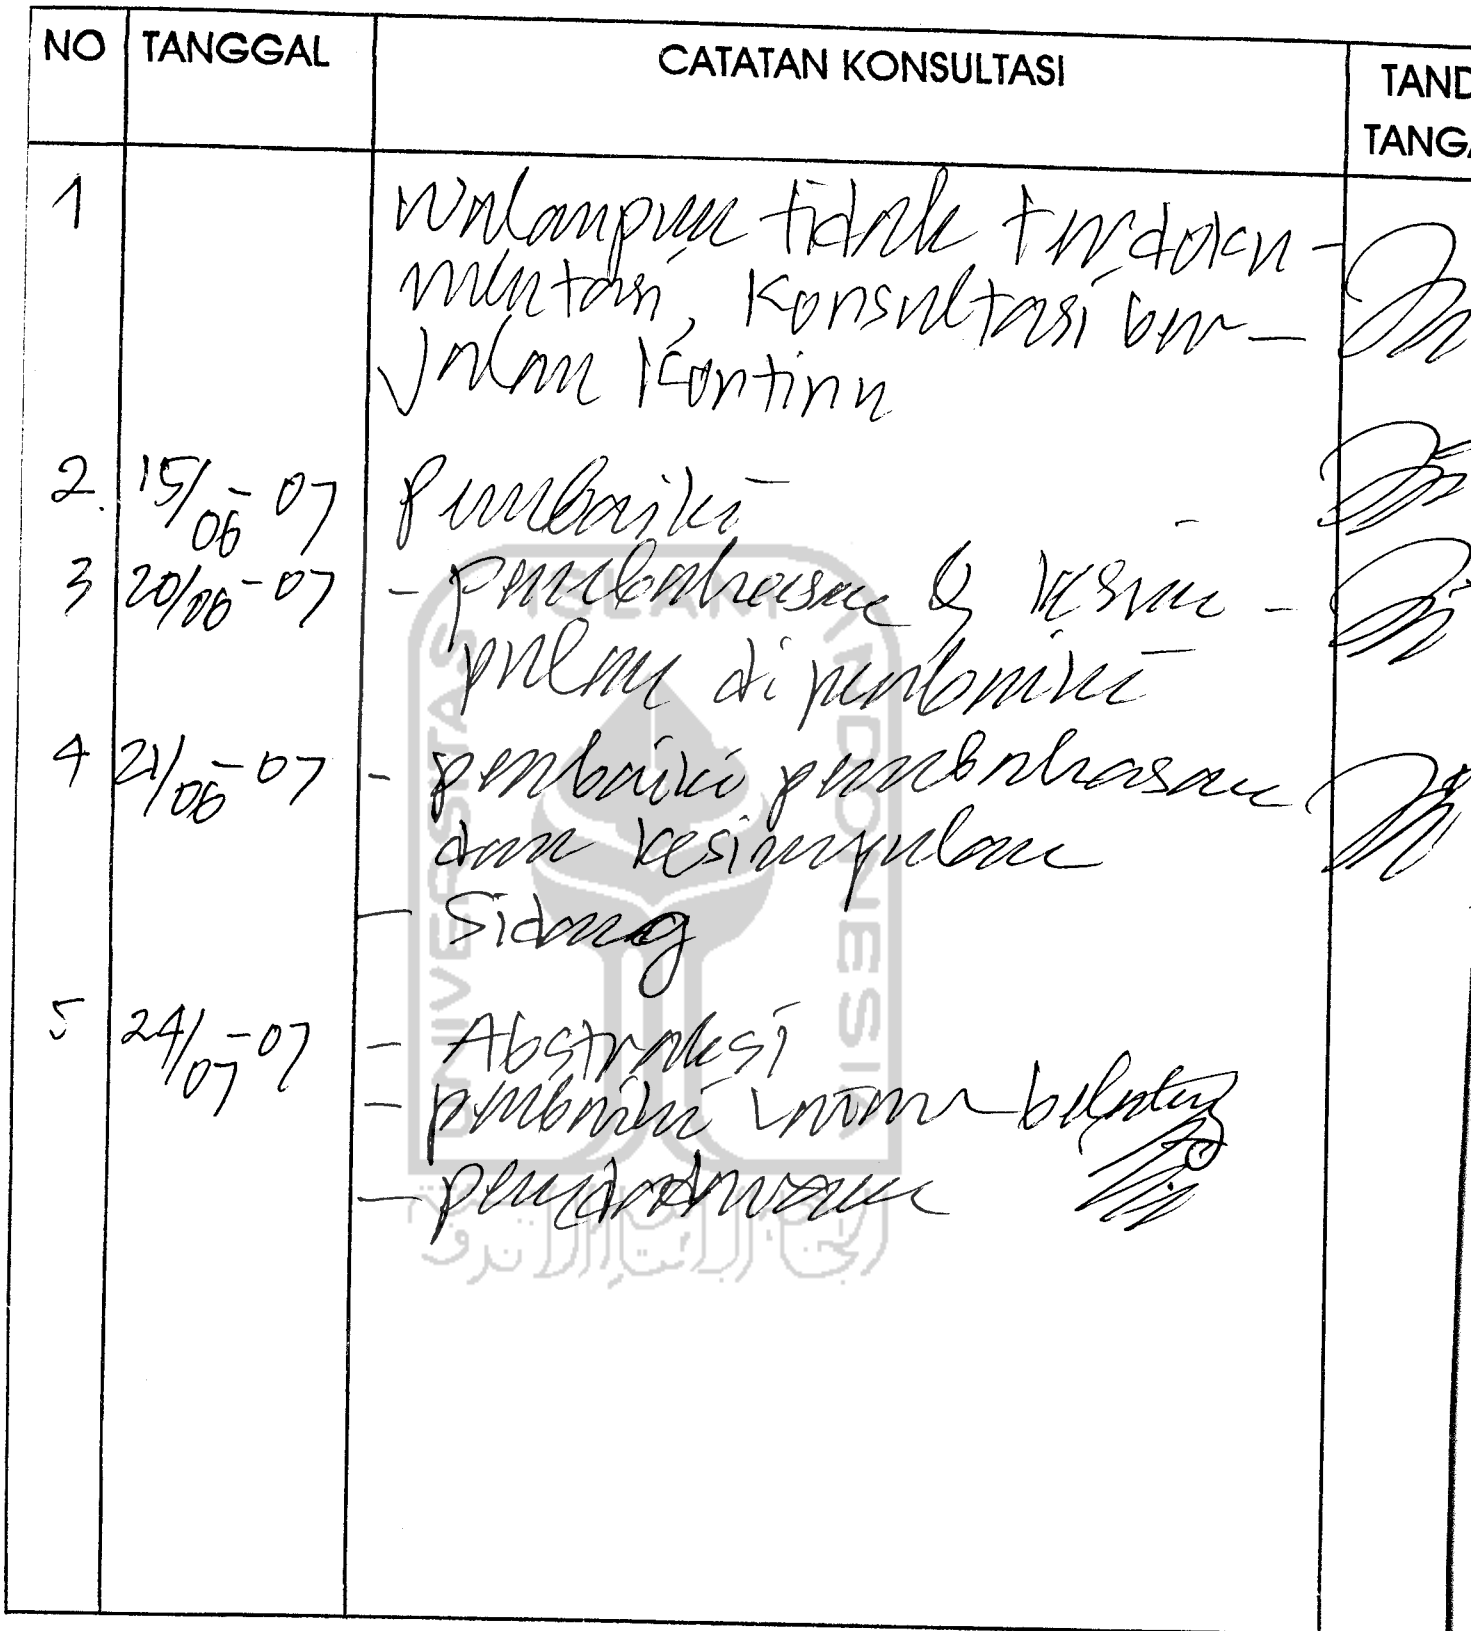 NO TANGGAL CATATAN KONSULTASI TAND
TANGA
1 Walaupun tidak terdoku-
mentasi, Konsultasi ber-
jalan Kontinu
2. 15/06-07 Perbaiki
3 20/06-07 - pembahasan & kesim-
pulan diperbaiki
4 21/06-07 - perbaiki pembahasan
dan kesimpulan
- Sidang
5 24/07-07 - Abstraksi
- perbaiki latar belakang
-
UNIVERSITAS ISLAM INDONESIA